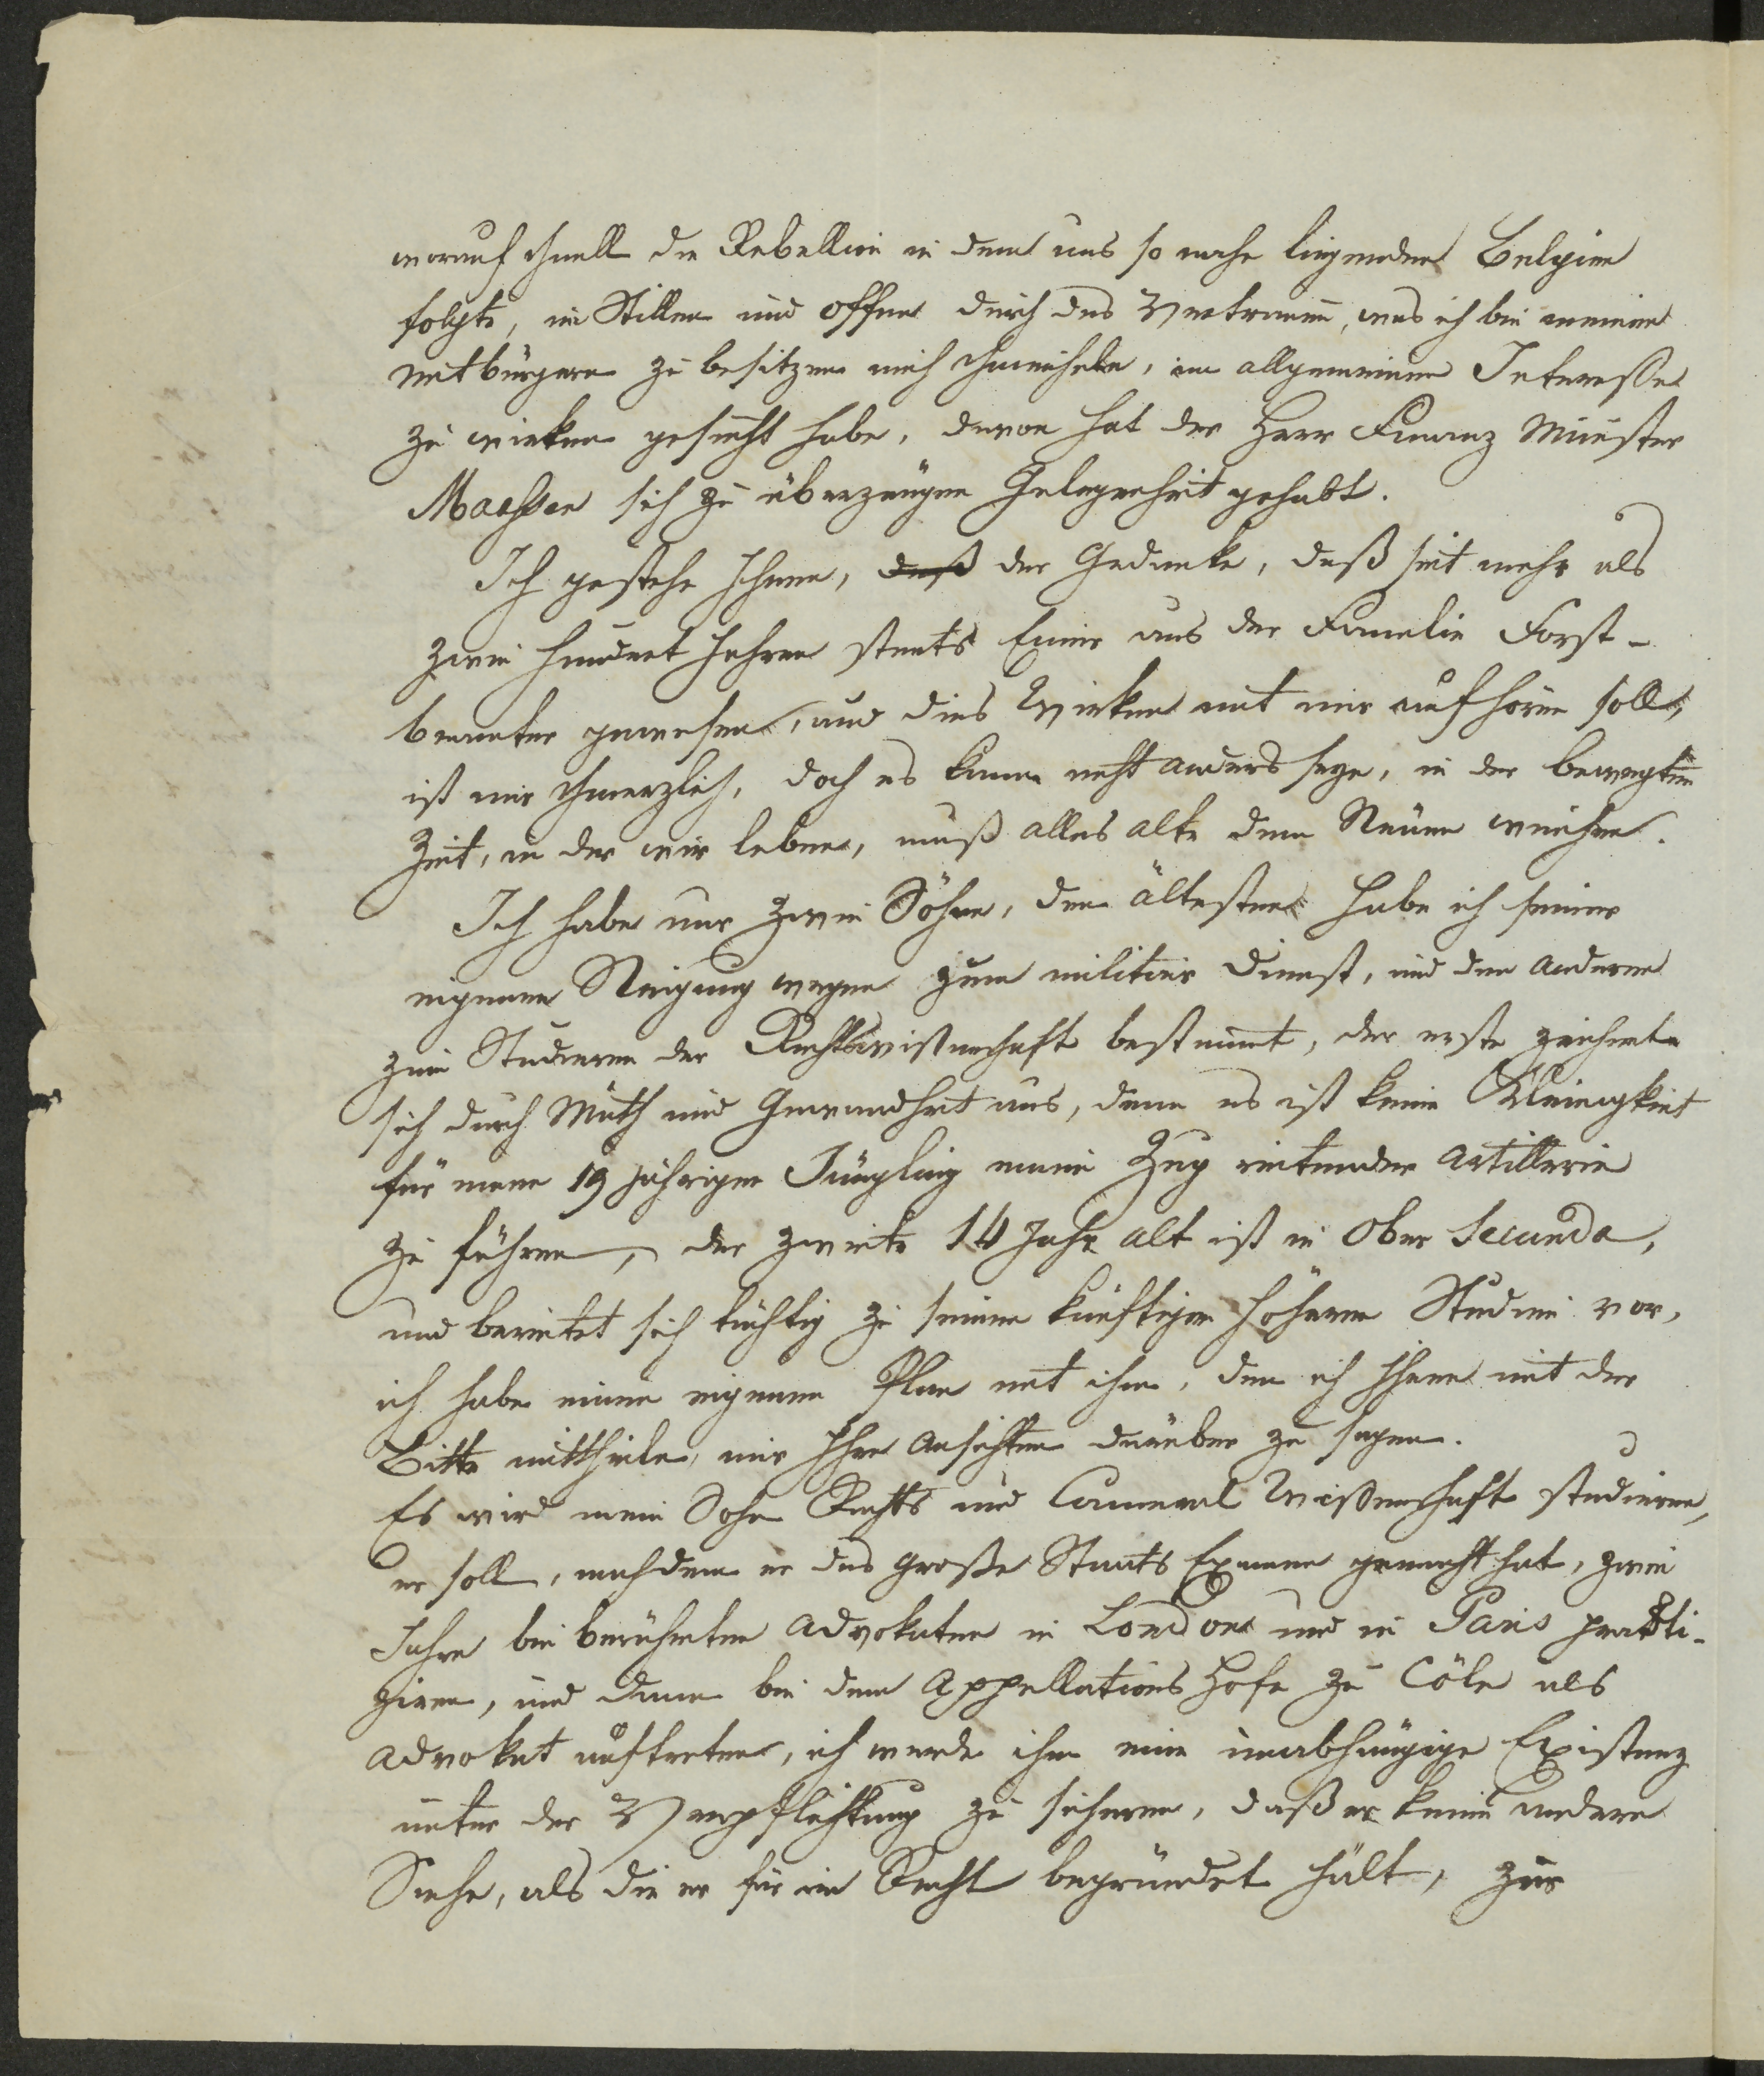 worauf schnell die Rebellion in dem uns so nahe liegenden Belgien
folgte, im Stillen und offen durch das Vertrauen, was ich bei meinen
Mitbürgern zu besitzen mich schmeichele, im allgemeinen Interesse
zu wirken gesucht habe, davon hat der Herr Finanz Minister
Maaßen sich zu überzeugen Gelegenheit gehabt.
Ich gestehe Ihnen, daß der Gedanke, daß seit mehr als
zwei hundert Jahren steets Einer aus der Familie Forst-
beamter gewesen, und dies Wirken mit mir aufhören soll,
ist mir schmerzlich, doch es kann nicht anders seyn, in der bewegten
Zeit, in der wir leben, muß alles alte dem Neuen weichen.
Ich habe nur zwei Söhne, den ältesten habe ich seiner
eigenen Neigung wegen zum militair Dienst, und den anderen
zum Studieren der Rechtswissenschaft bestimmt, der erste zeichnete
sich durch Muth und Gewandheit aus, denn es ist keine Kleinigkeit
für einen 19 jährigen Jüngling einen Zug reitender Artillerie
zu führen, der zweite 14 Jahr alt ist in Ober Secunda,
und bereitet sich tüchtig zu seinen künftigen höheren Studien vor,
ich habe einen eigenen Plan mit ihm, den ich Ihnen mit der
Bitte mittheile, mir Ihre Ansichten darüber zu sagen.
Es wird mein Sohn Rechts und Cameral Wissenschaft studieren,
er soll, nachdem er das große Staats Examen gemacht hat, zwei
Jahre bei berühmten Advokaten in London und in Paris prakti-
ziren, und dann bei dem Appellations Hofe zu Cöln als
Advokat auftreten, ich werde ihm eine unabhängige Existenz
unter der Verpflichtung zu sichern, daß er keine andere
Sache, als die er für im Recht begründet hält, zur